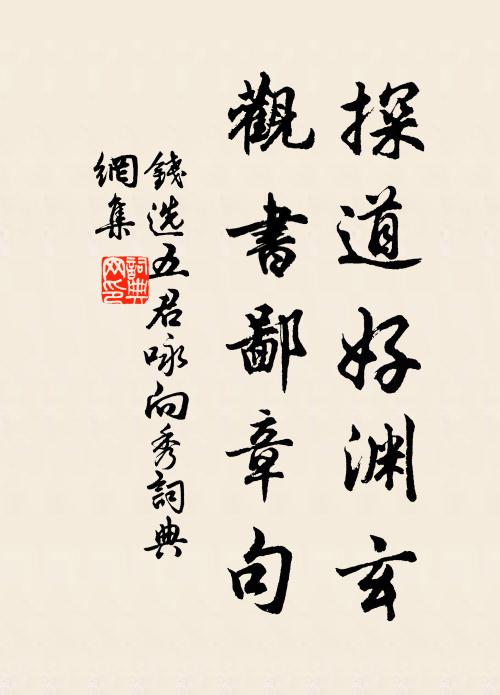 探道好渊玄
觀書鄙章句
錢选五君咏向秀詞典
網集
詞典
网印